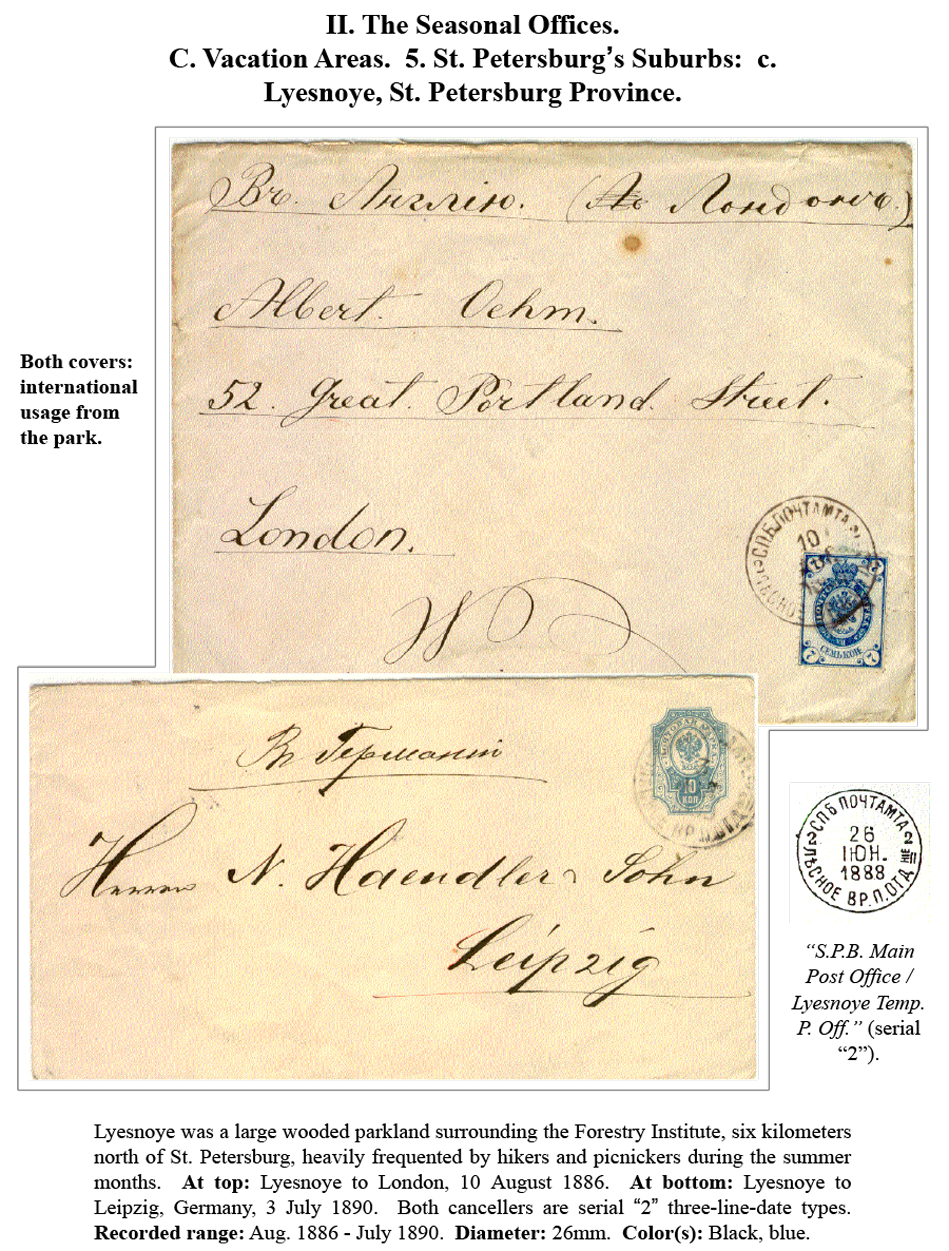 II. The Seasonal Offices.
C. Vacation Areas. 5. St. Petersburg’s Suburbs: c.
Lyesnoye, St. Petersburg Province.
Both covers:
international
usage from
the park.
Въ Англію. (Лондонъ.)
Albert. Oehm.
52. Great. Portland. Street.
London.
W
СПБ.ПОЧТАМТА 2
ЛѢСНОЕ
10
7 7
СЕМЬ КОП
7 7
Въ Германію
ПОЧТОВАЯ МАРКА
10
КОП
ВР.П.ОТД
Herrn N. Haendler Sohn
Leipzig
2 СПБ ПОЧТАМТА 2
26
ІЮН.
1888
ЛѢСНОЕ ВР.П.ОТД
“S.P.B. Main
Post Office /
Lyesnoye Temp.
P. Off.” (serial
“2”).
Lyesnoye was a large wooded parkland surrounding the Forestry Institute, six kilometers
north of St. Petersburg, heavily frequented by hikers and picnickers during the summer
months. At top: Lyesnoye to London, 10 August 1886. At bottom: Lyesnoye to
Leipzig, Germany, 3 July 1890. Both cancellers are serial “2” three-line-date types.
Recorded range: Aug. 1886 - July 1890. Diameter: 26mm. Color(s): Black, blue.